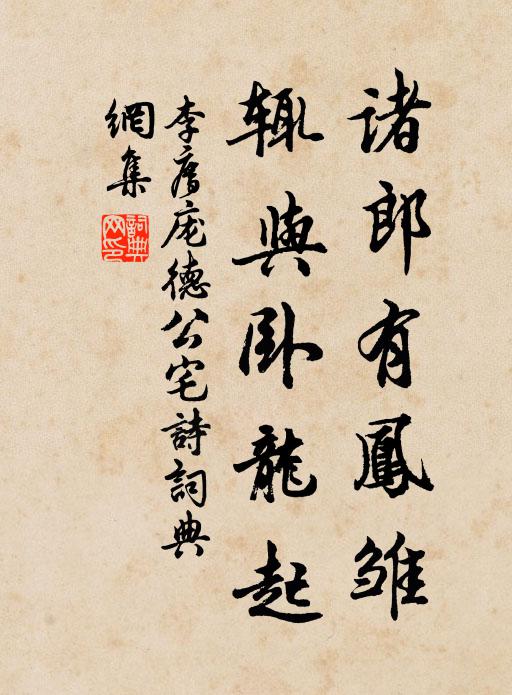 諸郎有鳳雛
輒與卧龍起
李廌龐德公宅詩詞典
網集
詞典
网印